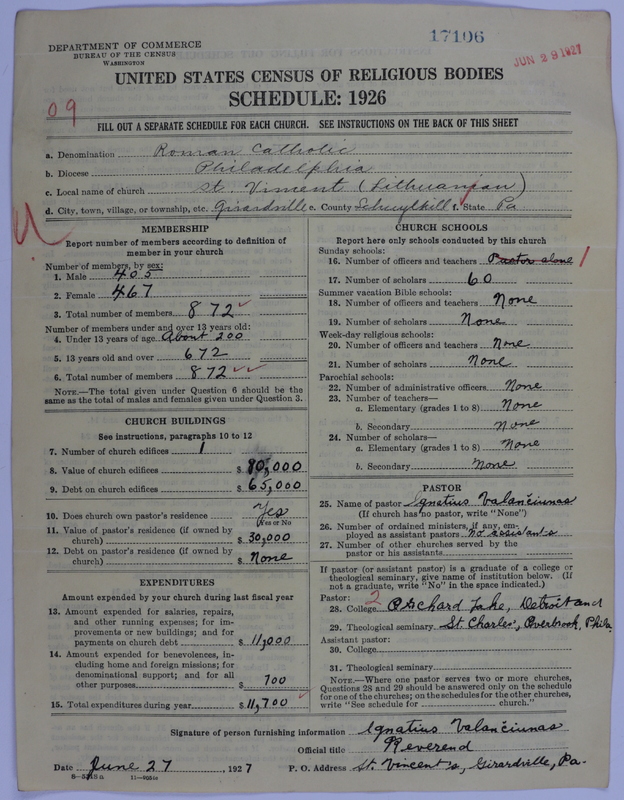 17106
JUN 29 1927
DEPARTMENT OF COMMERCE
BUREAU OF THE CENSUS
WASHINGTON
UNITED STATES CENSUS OF RELIGIOUS BODIES
SCHEDULE: 1926
09
FILL OUT A SEPARATE SCHEDULE FOR EACH CHURCH. SEE INSTRUCTIONS ON THE BACK OF THIS SHEET
a. Denomination Roman Catholic
b. Diocese Philadelphia
c. Local name of church St. Vincent (Lithuanian)
d. City, town, village, or township, etc. Girardville e. County Schuylkill f. State Pa
MEMBERSHIP
Report number of members according to definition of
member in your church
Number of members, by sex:
1. Male 405
2. Female 467
3. Total number of members 872
Number of members under and over 13 years old:
4. Under 13 years of age About 200
5. 13 years old and over 672
6. Total number of members 872
NOTE.—The total given under Question 6 should be the
same as the total of males and females given under Question 3.
CHURCH BUILDINGS
See instructions, paragraphs 10 to 12
7. Number of church edifices 1
8. Value of church edifices $ 90,000
9. Debt on church edifices $ 65,000
10. Does church own pastor's residence Yes
Yes or No
11. Value of pastor's residence (if owned by
church) $ 30,000
12. Debt on pastor's residence (if owned by
church) $ None
EXPENDITURES
Amount expended by your church during last fiscal year
13. Amount expended for salaries, repairs,
and other running expenses; for im-
provements or new buildings; and for
payments on church debt $ 11,000
14. Amount expended for benevolences, in-
cluding home and foreign missions; for
denominational support; and for all
other purposes $ 700
15. Total expenditures during year $ 11,700
CHURCH SCHOOLS
Report here only schools conducted by this church
Sunday schools:
16. Number of officers and teachers Pastor alone 1
17. Number of scholars 60
Summer vacation Bible schools:
18. Number of officers and teachers None
19. Number of scholars None
Week-day religious schools:
20. Number of officers and teachers None
21. Number of scholars None
Parochial schools:
22. Number of administrative officers None
23. Number of teachers—
a. Elementary (grades 1 to 8) None
b. Secondary None
24. Number of scholars—
a. Elementary (grades 1 to 8) None
b. Secondary None
PASTOR
25. Name of pastor Ignatius Valančiunas
(If church has no pastor, write "None")
26. Number of ordained ministers, if any, em-
ployed as assistant pastors No assistants
27. Number of other churches served by the
pastor or his assistants
If pastor (or assistant pastor) is a graduate of a college or
theological seminary, give name of institution below. (If
not a graduate, write "No" in the space indicated.)
Pastor: 2
28. College Orchard Lake, Detroit and
29. Theological seminary St. Charles', Overbrook, Phila.
Assistant pastor:
30. College
31. Theological seminary
NOTE.—Where one pastor serves two or more churches,
Questions 28 and 29 should be answered only on the schedule
for one of the churches; on the schedules for the other churches,
write "See schedule for church."
Signature of person furnishing information Ignatius Valančiunas
Official title Reverend
Date June 27, 1927 P. O. Address St. Vincent's, Girardville, Pa.